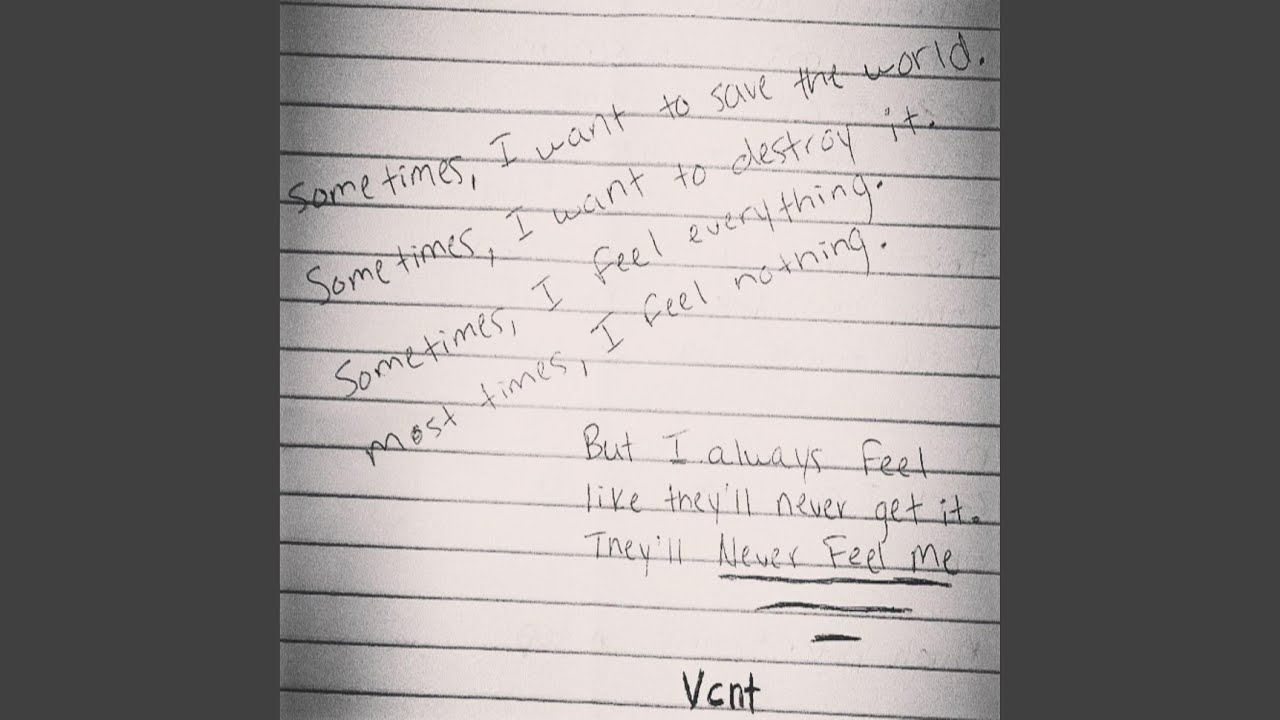 Sometimes, I want to save the world.
Sometimes, I want to destroy it.
Sometimes, I feel everything.
most times, I feel nothing.
But I always Feel
like they'll never get it.
They'll Never Feel Me
Vcnt